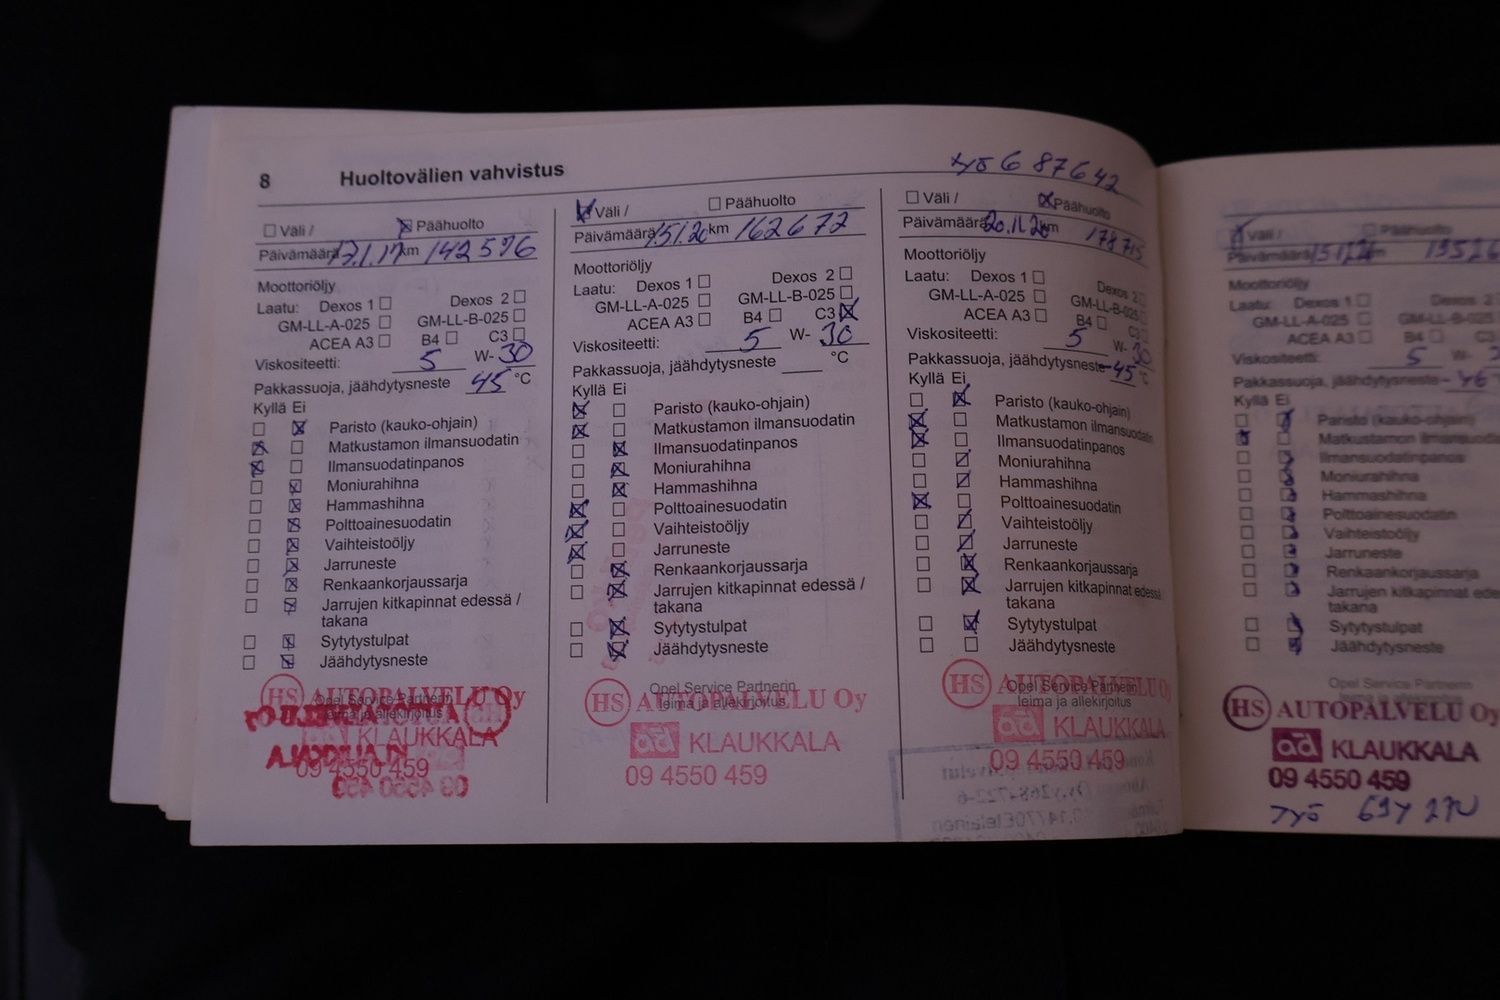 8 Huoltovälien vahvistus
työ 6 87642
Väli / Päähuolto
Päivämäärä 17.1.19 km 142596
Moottoriöljy
Laatu: Dexos 1 Dexos 2
GM-LL-A-025 GM-LL-B-025
ACEA A3 B4 C3
Viskositeetti: 5 W- 30
Pakkassuoja, jäähdytysneste 45 °C
Kyllä Ei
Paristo (kauko-ohjain)
Matkustamon ilmansuodatin
Ilmansuodatinpanos
Moniurahihna
Hammashihna
Polttoainesuodatin
Vaihteistoöljy
Jarruneste
Renkaankorjaussarja
Jarrujen kitkapinnat edessä /
takana
Sytytystulpat
Jäähdytysneste
Opel Service Partnerin
leima ja allekirjoitus
HS AUTOPALVELU Oy
ad KLAUKKALA
09 4550 459
Väli / Päähuolto
Päivämäärä 15.1.20 km 162672
Moottoriöljy
Laatu: Dexos 1 Dexos 2
GM-LL-A-025 GM-LL-B-025
ACEA A3 B4 C3
Viskositeetti: 5 W- 30
Pakkassuoja, jäähdytysneste °C
Kyllä Ei
Paristo (kauko-ohjain)
Matkustamon ilmansuodatin
Ilmansuodatinpanos
Moniurahihna
Hammashihna
Polttoainesuodatin
Vaihteistoöljy
Jarruneste
Renkaankorjaussarja
Jarrujen kitkapinnat edessä /
takana
Sytytystulpat
Jäähdytysneste
Opel Service Partnerin
leima ja allekirjoitus
HS AUTOPALVELU Oy
ad KLAUKKALA
09 4550 459
Väli / Päähuolto
Päivämäärä 20.11.20 km 178715
Moottoriöljy
Laatu: Dexos 1 Dexos 2
GM-LL-A-025 GM-LL-B-025
ACEA A3 B4 C3
Viskositeetti: 5 W- 30
Pakkassuoja, jäähdytysneste -45 °C
Kyllä Ei
Paristo (kauko-ohjain)
Matkustamon ilmansuodatin
Ilmansuodatinpanos
Moniurahihna
Hammashihna
Polttoainesuodatin
Vaihteistoöljy
Jarruneste
Renkaankorjaussarja
Jarrujen kitkapinnat edessä
takana
Sytytystulpat
Jäähdytysneste
Opel Service Partnerin
leima ja allekirjoitus
HS AUTOPALVELU O
ad KLAUKKALA
09 4550 459
Väli / Päähuolto
Päivämäärä
Moottoriöljy
Laatu: Dexos 1 Dexos 2
GM-LL-A-025 GM-LL-B-025
ACEA A3 B4 C3
Viskositeetti: 5 W-
Pakkassuoja, jäähdytysneste -46
Kyllä Ei
Paristo (kauko-ohjain)
Matkustamon ilmansuoda
Ilmansuodatinpanos
Moniurahihna
Hammashihna
Polttoainesuodatin
Vaihteistoöljy
Jarruneste
Renkaankorjaussarja
Jarrujen kitkapinnat ede
takana
Sytytystulpat
Jäähdytysneste
Opel Service Partnerin
leima ja allekirjoitus
HS AUTOPALVELU Oy
ad KLAUKKALA
09 4550 459
Työ